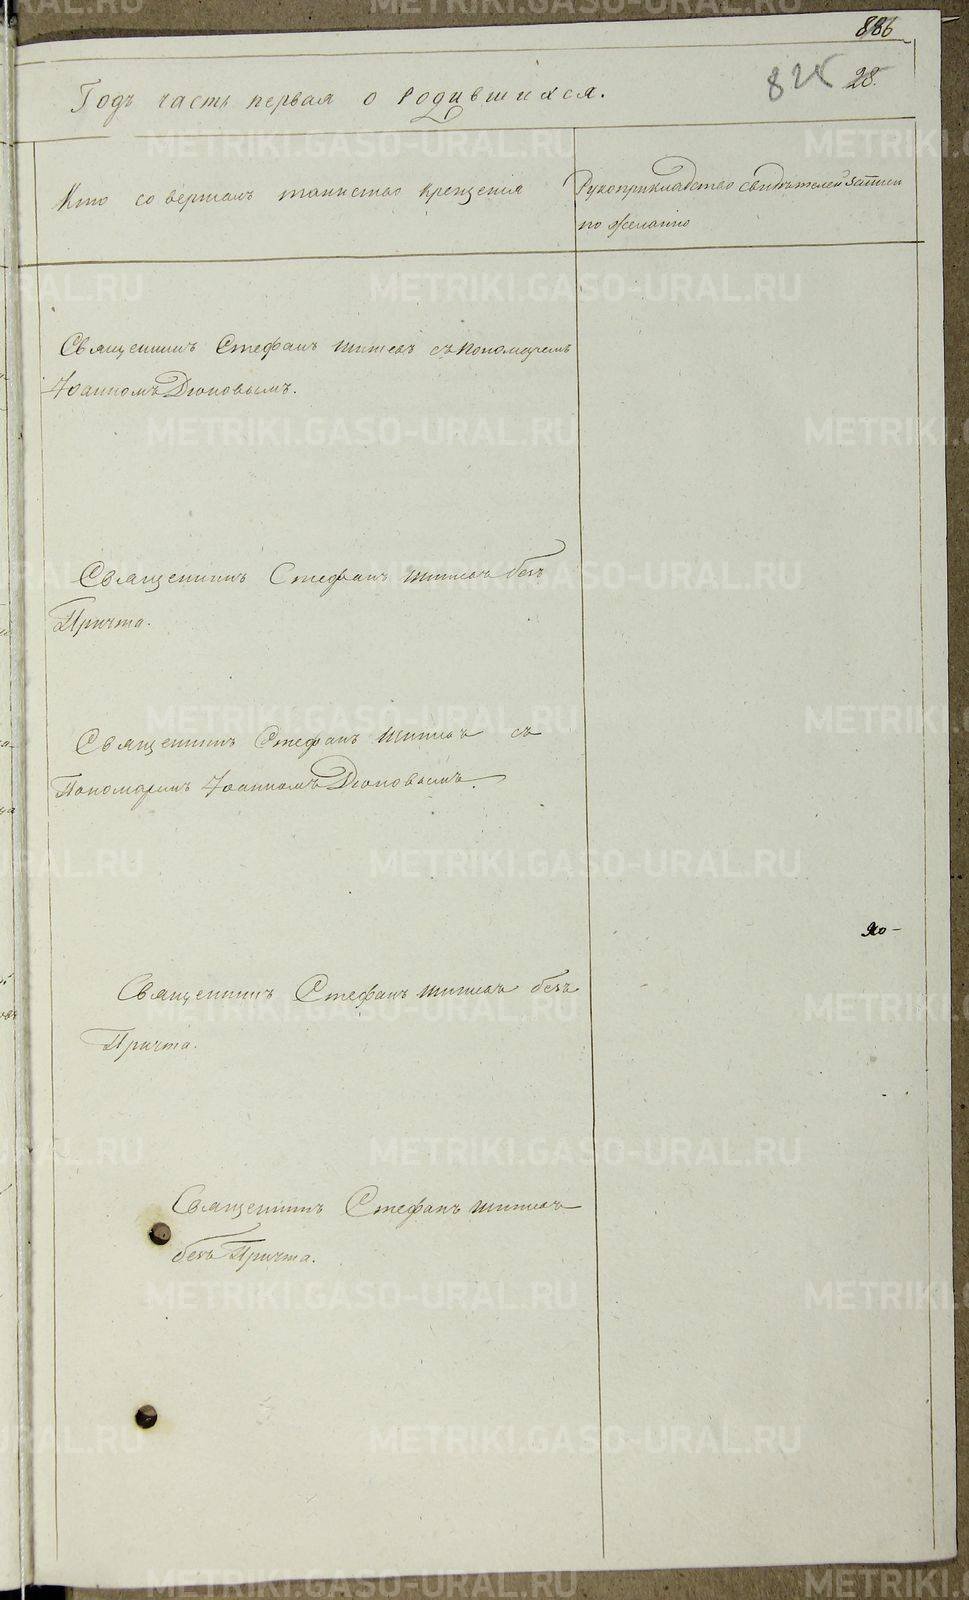 886
825 28.
Годъ часть первая о родившихся.
Кто совершалъ таинство крещенiя
Рукоприкладство свидѣтелей записи
по желанiю
Священникъ Стефанъ Шитевъ съ Пономаремъ
Iоанномъ Дюковымъ.
Священникъ Стефанъ Шитевъ безъ
Причта.
Священникъ Стефанъ Шитевъ съ
Пономаремъ Iоанномъ Дюковымъ.
Священникъ Стефанъ Шитевъ безъ
Причта.
Священникъ Стефанъ Шитевъ
безъ Причта.
METRIKI.GASO-URAL.RU